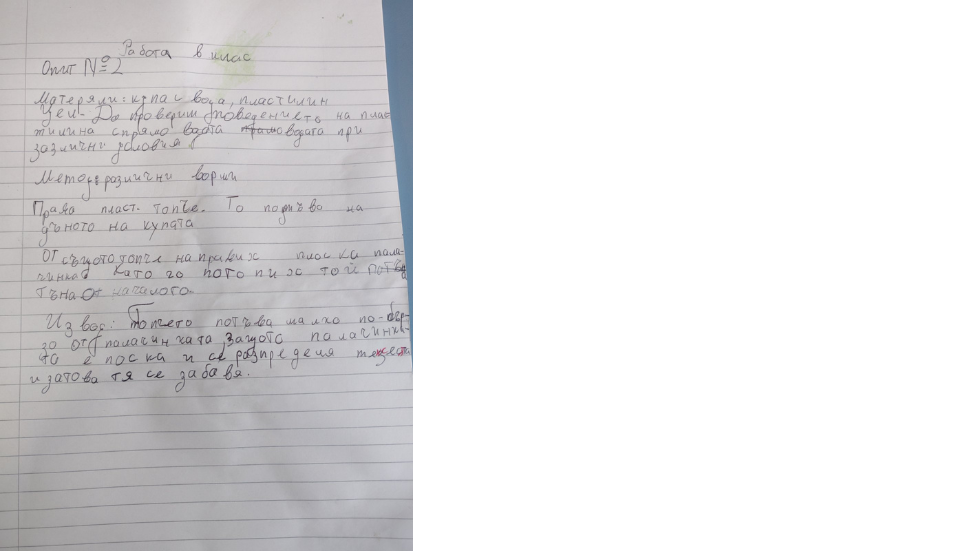 Работа в клас
Опит №2
Матеряли: купа с вода, пластилин
Цел- Да проверим поведението на плас-
тилина спрямо водата водата при
различни условия
Метод: различни ворми
Права пласт. топче. То потъва на
дъното на купата
От същото топче направих плоска пала-
чинка. Като го потопих той потъ
тъна от началото.
Извод: Топчето потъва малко по-бър-
зо от палачинката защото палачинка-
та е плоска и се разпределя тежестта
и затова тя се забавя.